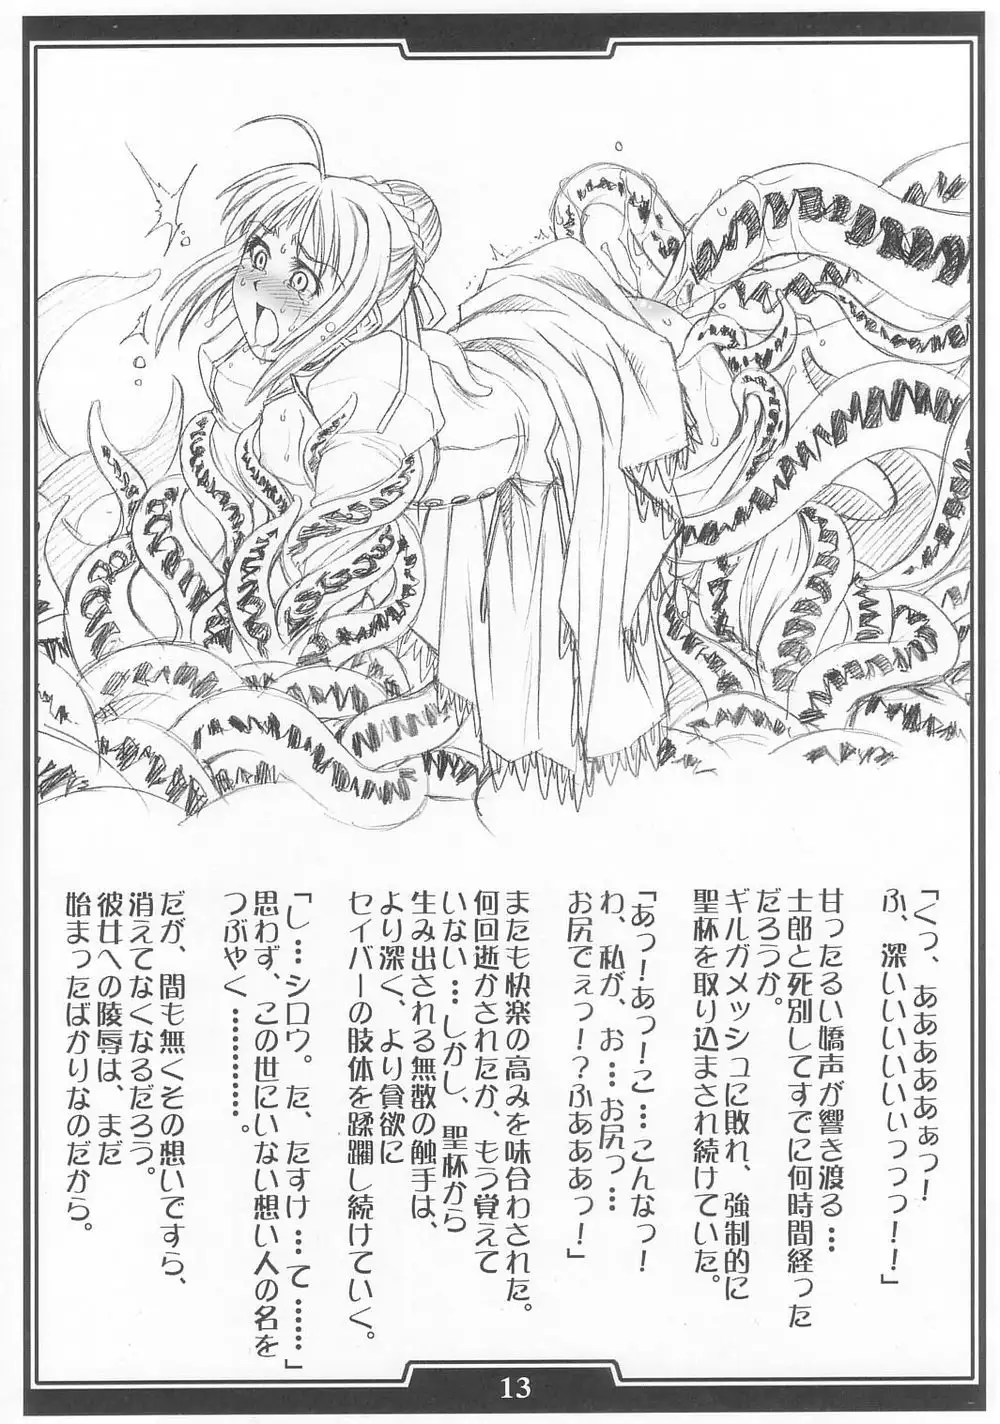 「くっ、あああああぁっ！
ふ、深いいいいいぃっつっ！！」
甘ったるい嬌声が響き渡る…
士郎と死別してすでに何時間経った
だろうか。
ギルガメッシュに敗れ、強制的に
聖杯を取り込まされ続けていた。
「あっ！あっ！こ…こんなっ！
わ、私が、お…お尻っ…
お尻でぇっ！？ふあああっ！」
またも快楽の高みを味合わされた。
何回逝かされたか、もう覚えて
いない…しかし、聖杯から
生み出される無数の触手は、
より深く、より貪欲に
セイバーの肢体を蹂躙し続けていく。
「し…シロウ。た、たすけ…て………」
思わず、この世にいない想い人の名を
つぶやく…………。
だが、間も無くその想いですら、
消えてなくなるだろう。
彼女への陵辱は、まだ
始まったばかりなのだから。
13